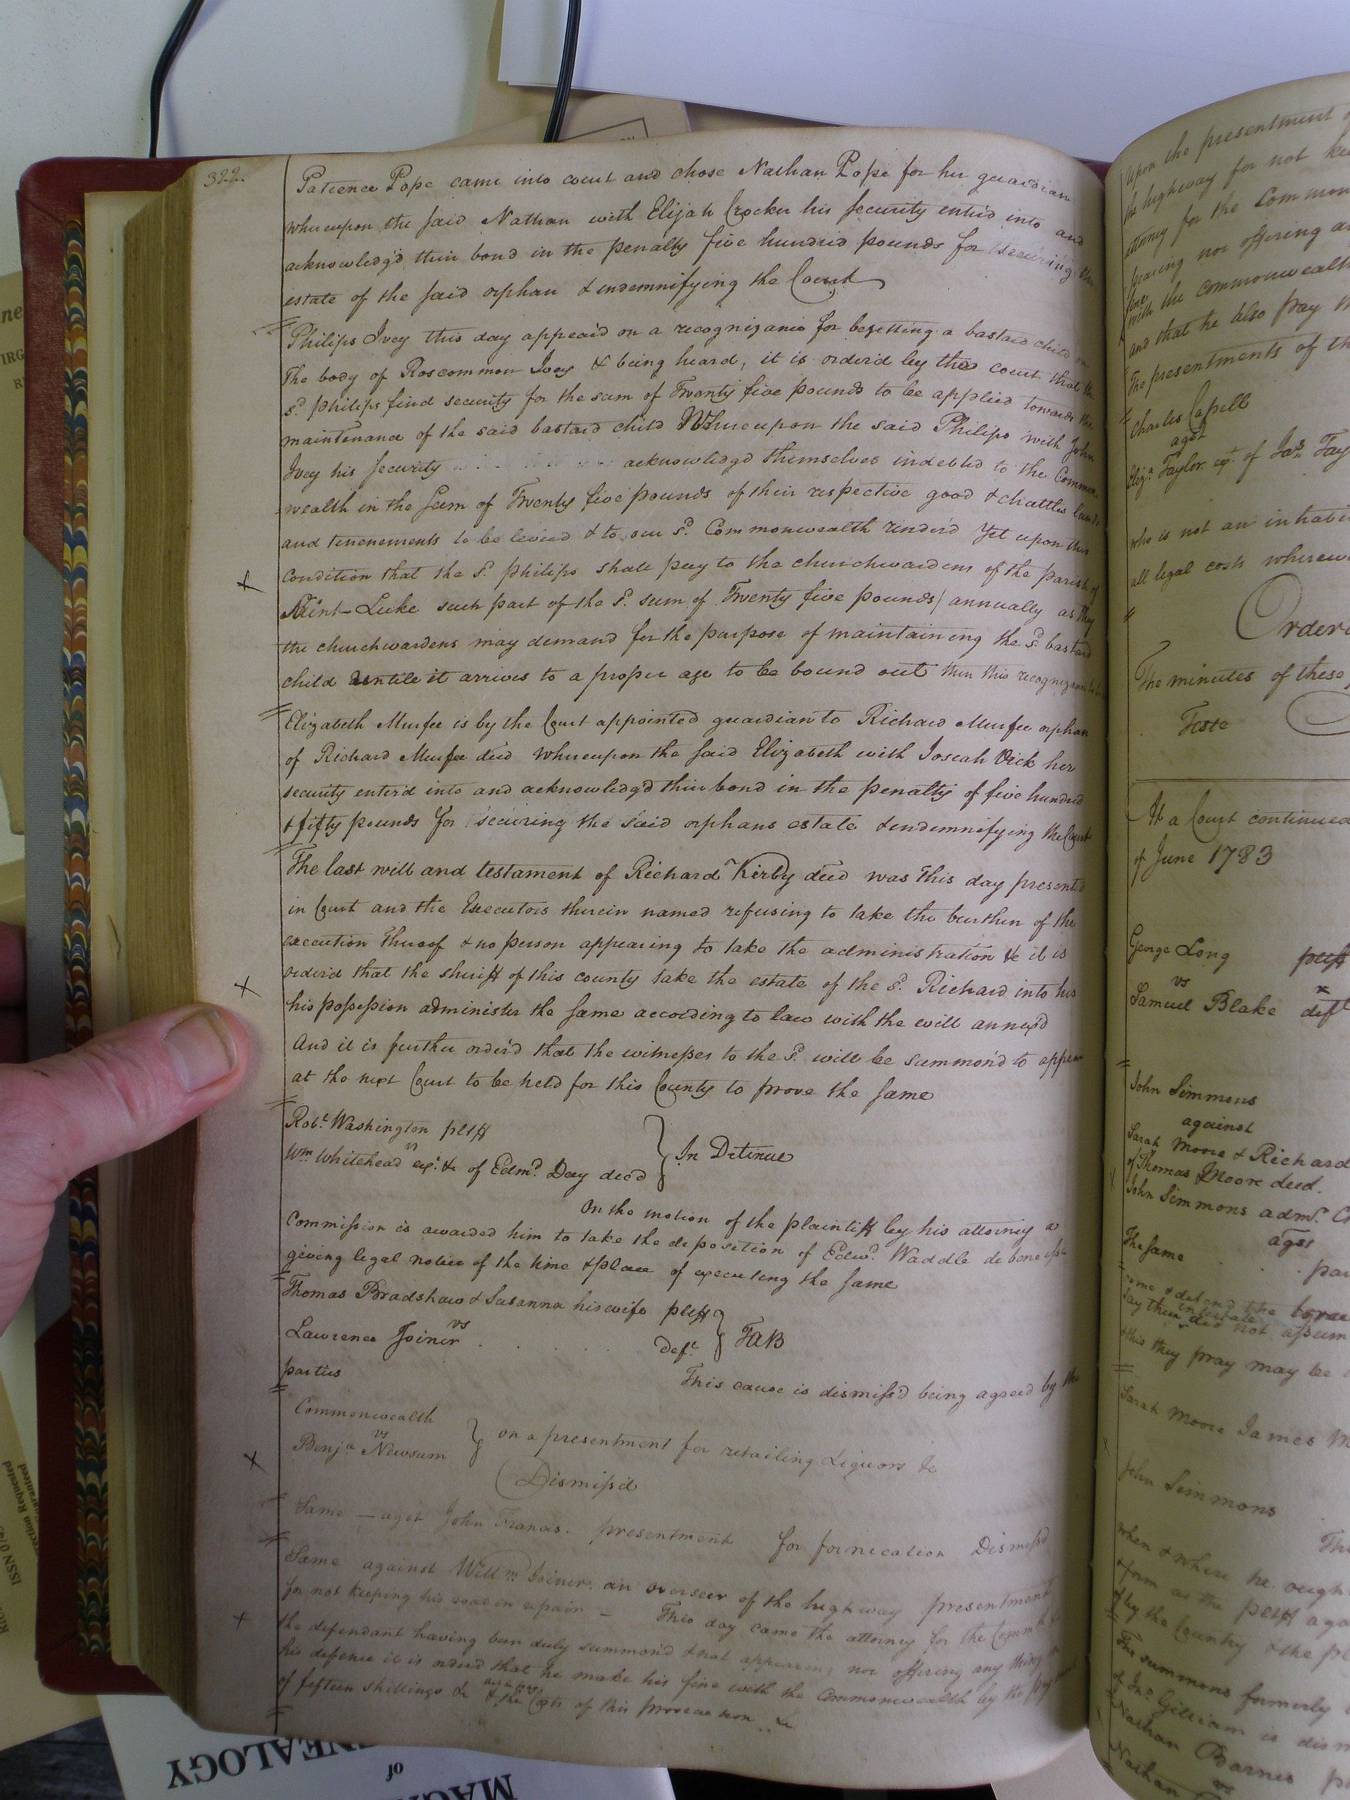 322.
Patience Pope came into court and chose Nathan Pope for her guardian
whereupon the said Nathan with Elijah Crocker his security enterd into and
acknowledg'd their bond in the penalty five hundred pounds for securing the
estate of the said orphan & indemnifying the Court
Philips Ivey this day appear'd on a recognizance for begetting a bastard child on
the body of Roscommon Ivey & being heard, it is order'd by the court that the
sd. philips find security for the sum of Twenty five pounds to be applied towards the
maintenance of the said bastard child Whereupon the said Philips with John
Ivey his security acknowledgd themselves indebted to the Common
-wealth in the sum of Twenty five pounds of their respective good & chattles lands
and tenements to be levied & to our sd. Commonwealth render'd Yet upon this
Condition that the sd. philips shall pay to the churchwardens of the parish of
Saint Luke such part of the sd. sum of Twenty five pounds annually as they
the churchwardens may demand for the purpose of maintaining the sd. bastard
child untile it arrives to a proper age to be bound out then this recognizance
Elizabeth Murfee is by the Court appointed guardian to Richard Murfee orphan
of Richard Murfee deed Whereupon the said Elizabeth with Joseah Vick her
security enter'd into and acknowledg'd their bond in the penalty of five hundred
& fifty pounds for securing the said orphans estate & indemnifying the Court
The last will and testament of Richard Kirby deed was this day presented
in Court and the Executors therein named refusing to take the burthen of the
execution thereof & no person appearing to take the administration &c it is
orderd that the sheriff of this county take the estate of the sd. Richard into his
his possession administer the same according to law with the will annex'd
And it is further orderd that the witnesses to the sd. will be summon'd to appear
at the next Court to be held for this County to prove the same
Robt. Washington pltff
vs
Wm Whitehead exr. &c of Edmd. Day decd
In Detinue
On the motion of the plaintiff by his attorney a
Commission is awarded him to take the deposition of Edwd. Waddle de bene esse
giving legal notice of the time & place of executing the same
Thomas Bradshaw & Susanna his wife pltff
vs
Lawrence Joiner deft.
TAB
This cause is dismiss'd being agreed by the
parties
Commonwealth
vs
Benja Newsum
on a presentment for retailing Liquors &c
Dismiss'd
Same — agst John Francis. presentment for fornication Dismissd
Same against Willm Joiner, an overseer of the highway presentment
for not keeping his road in repair — This day came the attorney for the Comm
the defendant having been duly summon'd & not appearing nor offering any thing in
his defence it is orderd that he make his fine with the Commonwealth by the
of fifteen shillings &c & the costs of this prosecution &c
Upon the presentment
the highway for not
attorney for the Common
pearing nor offering
fine
with the commonwealth
and that he also pay
The presentments of th
Charles Capell
agst
Eliza. Taylor ex. of Jas. Tay
who is not an inhabi
all legal costs wherew
Order
The minutes of these
Teste
At a Court continued
of June 1783
George Long pltff
vs
Samuel Blake deft
John Simmons
against
Sarah Moore & Richard
of Thomas Moore deed.
John Simmons admr.
agst
The Same
Sarah Moore James M
John Simmons
The
when & where he ough
& form as the pltff aga
The summons formerly
of Jno. Gilliam is dism
Nathan Barnes
vs
Nathan
GENEALOGY
of
MAG
ISSN